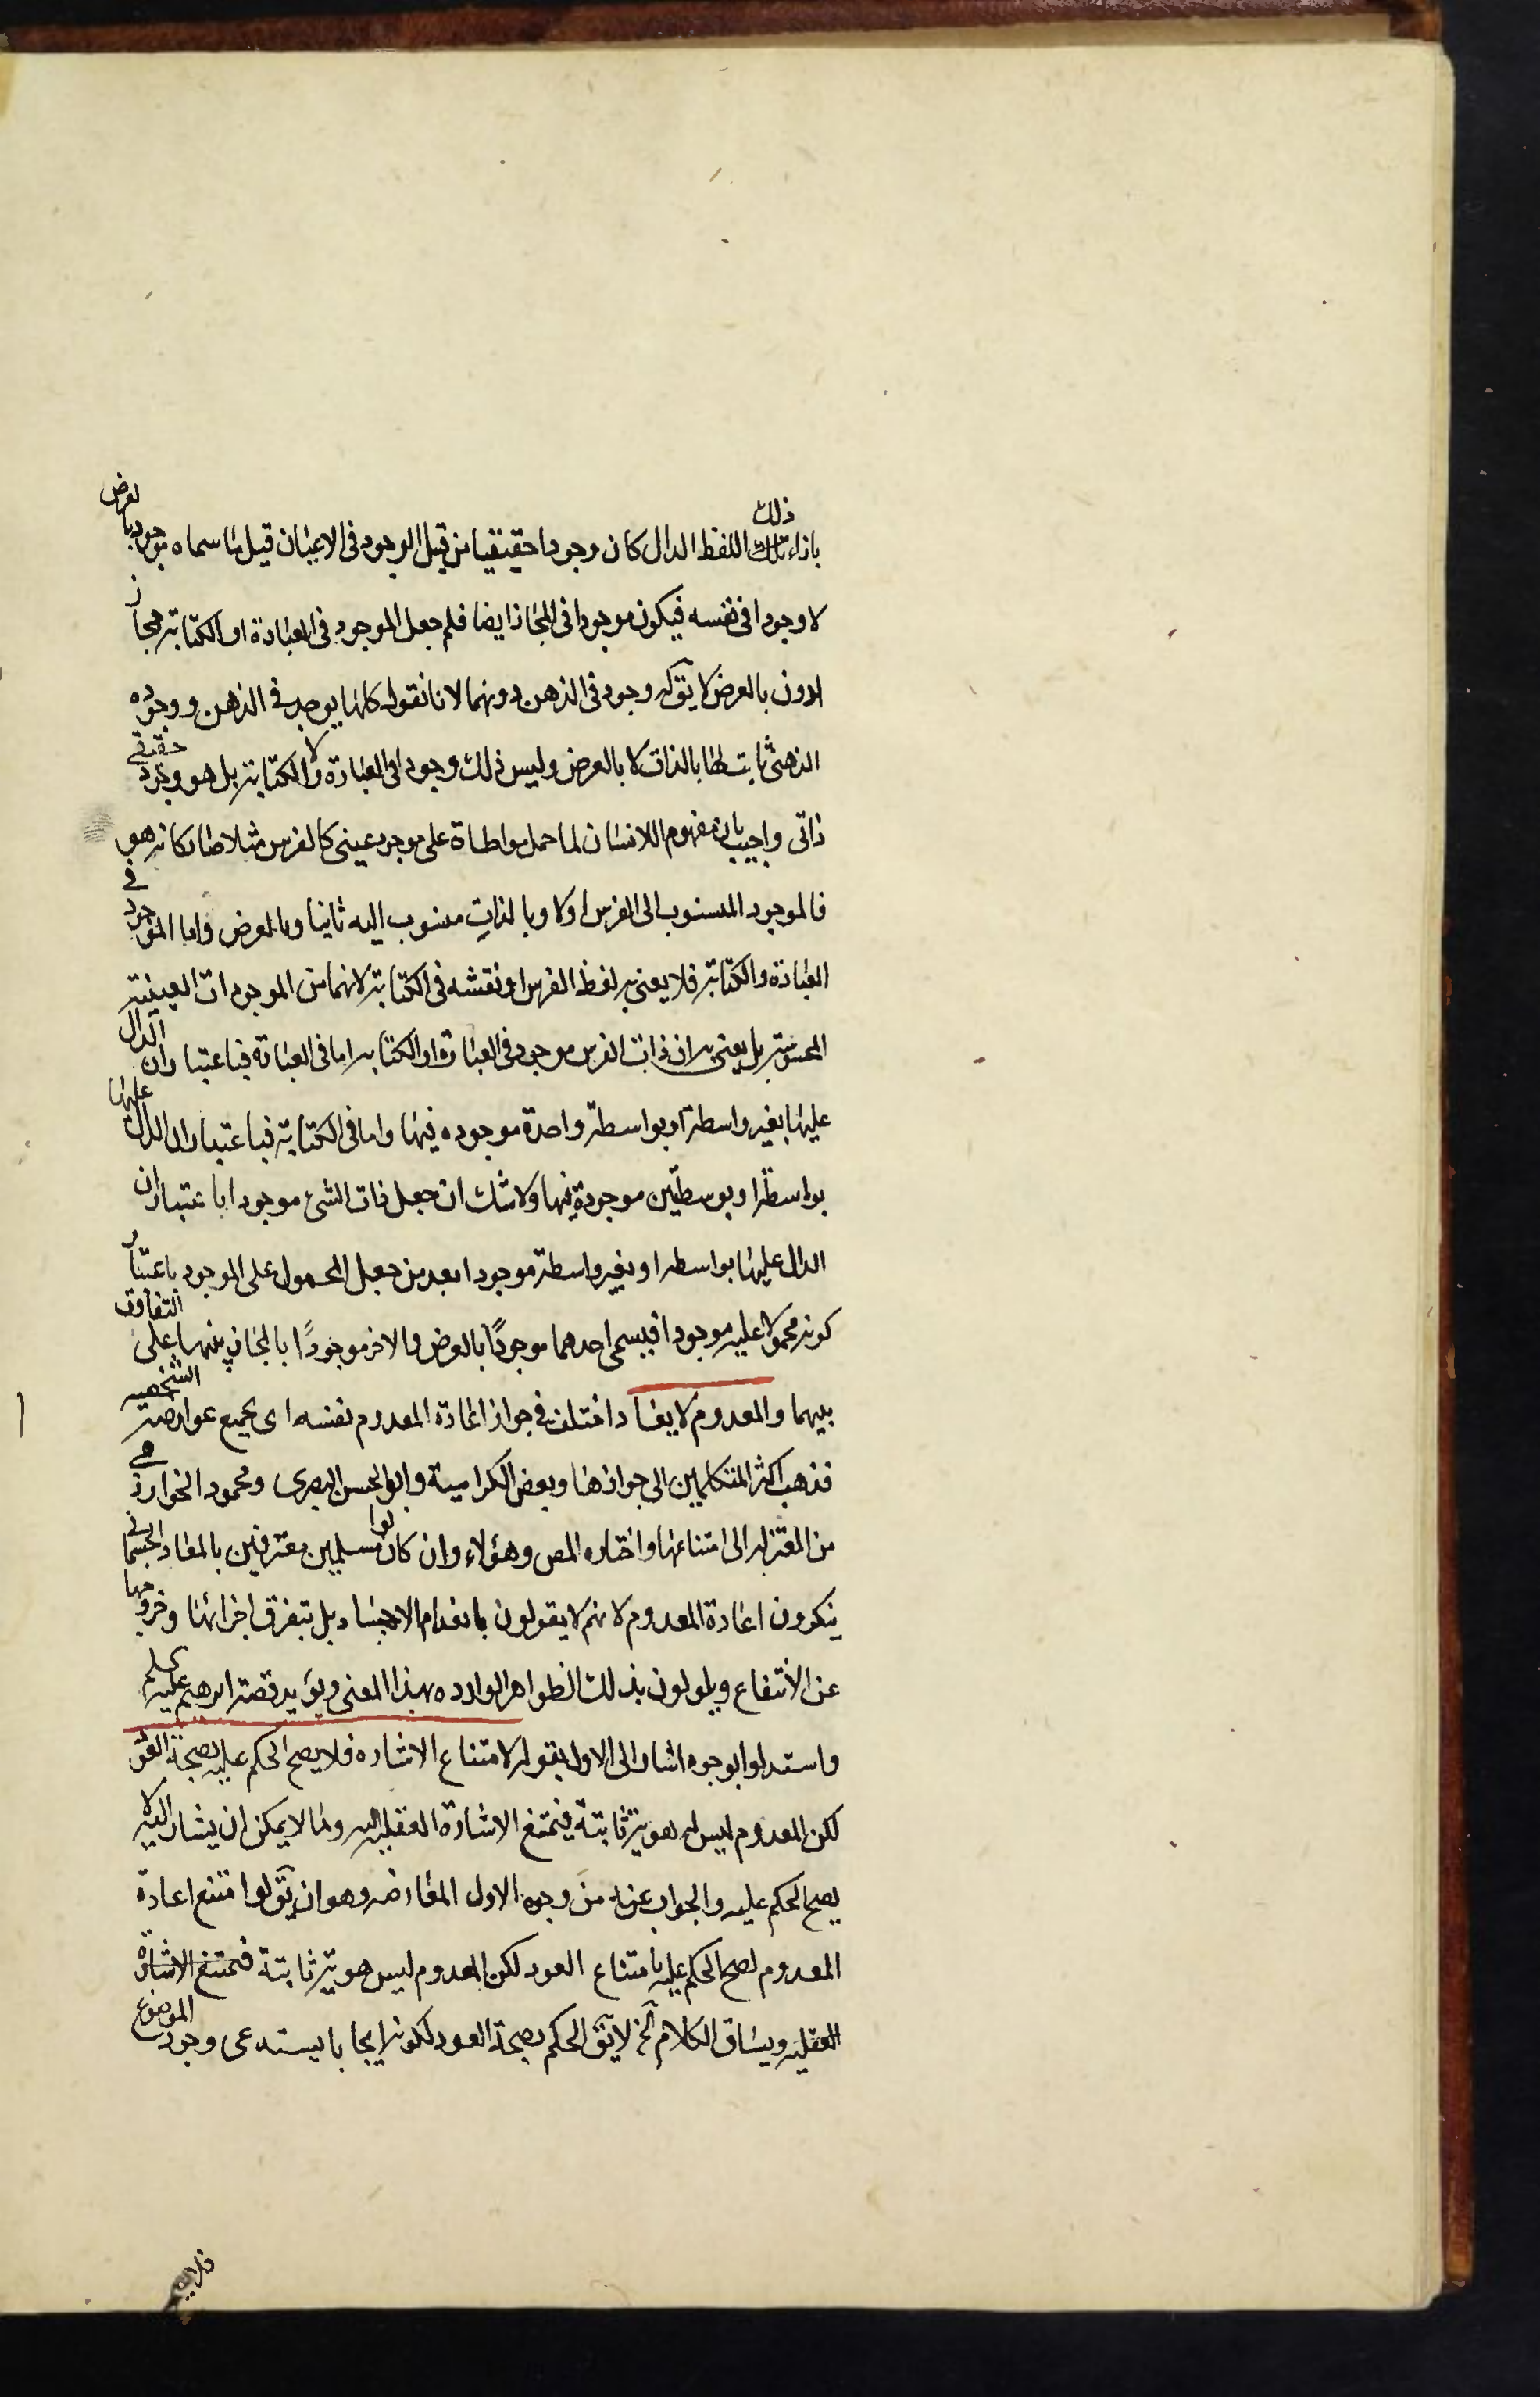 بازاء ذلك اللفظ الدال كان وجودا حقيقيا من قبل الوجود فى الاعيان قيل ما سماه موجودا بالعرض
لا وجود له فى نفسه فيكون موجودا فى المجاز ايضا فلم جعل الموجود فى العبارة او الكتابة مجازا
دون بالعرض لا يق له وجود فى الذهن دونهما لانا نقول كلها يوجد فى الذهن ووجوده
الذهنى ثابت لها بالذات لا بالعرض وليس ذلك وجودا فى العبارة ولا الكتابة بل هو وجود حقيقى
ذاتى واجيب بان مفهوم اللاانسان لما حمل مواطاة على موجود عينى كالفرس مثلا صار كانه هو
فالموجود المنسوب الى الفرس اولا وبالذات منسوب اليه ثانيا وبالعرض واما الموجود فى
العبارة والكتابة فلا يعنى به لفظ الفرس او نقشه فى الكتابة لانهما من الموجودات العينية
المحسوسة بل يعنى به ان ذات الفرس موجود فى العبارة او الكتابة اما فى العبارة فباعتبار ان الدال
عليها بغير واسطة او بواسطة واحدة موجوده فيها واما فى الكتابة فباعتبار ان الدال عليها
بواسطة او بوسطتين موجودة فيها ولا شك ان جعل ذات الشئ موجودا باعتبار ان
الدال عليها بواسطه او بغير واسطة موجودا بعد من جعل المحمول على الموجود باعتبار
كونه محمولا عليه موجودا فيسمى احدهما موجودًا بالعرض والاخر موجودًا بالمجاز تنبيها على التفاوت
بينهما والمعدوم لا يعاد اختلف فى جواز اعادة المعدوم بنفسه اى بجميع عوارضه الشخصيه
فذهب اكثر المتكلمين الى جوازها وبعض الكرامية وابو الحسن البصرى ومحمود الخوارزمى
من المعتزله الى امتناعها واختاره المص وهؤلاء وان كانوا مسلمين معترفين بالمعاد الجسمانى
ينكرون اعادة المعدوم لانهم لا يقولون بانعدام الاجساد بل بتفرق اجزائها وخروجها
عن الانتفاع ويأولون بذلك الظواهر الوارده بهذا المعنى ويؤيد قصة ابرهيم عليه السلم
واستدلوا بوجوه اشار الى الاول بقوله لامتناع الاشاره فلا يصح الحكم عليه بصحة العود
لكن المعدوم ليس له هوية ثابتة فيمتنع الاشارة العقليه اليه وما لا يمكن ان يشار اليه لا
يصح الحكم عليه والجواب عنه من وجوه الاول المعارضه وهو ان يق لو امتنع اعادة
المعدوم لصح الحكم عليه بامتناع العود لكن المعدوم ليس هوية ثابتة فيمتنع الاشارة
العقليه ويساق الكلام الخ لا يق الحكم بصحة العود لكونه ايجابا يستدعى وجود الموضوع